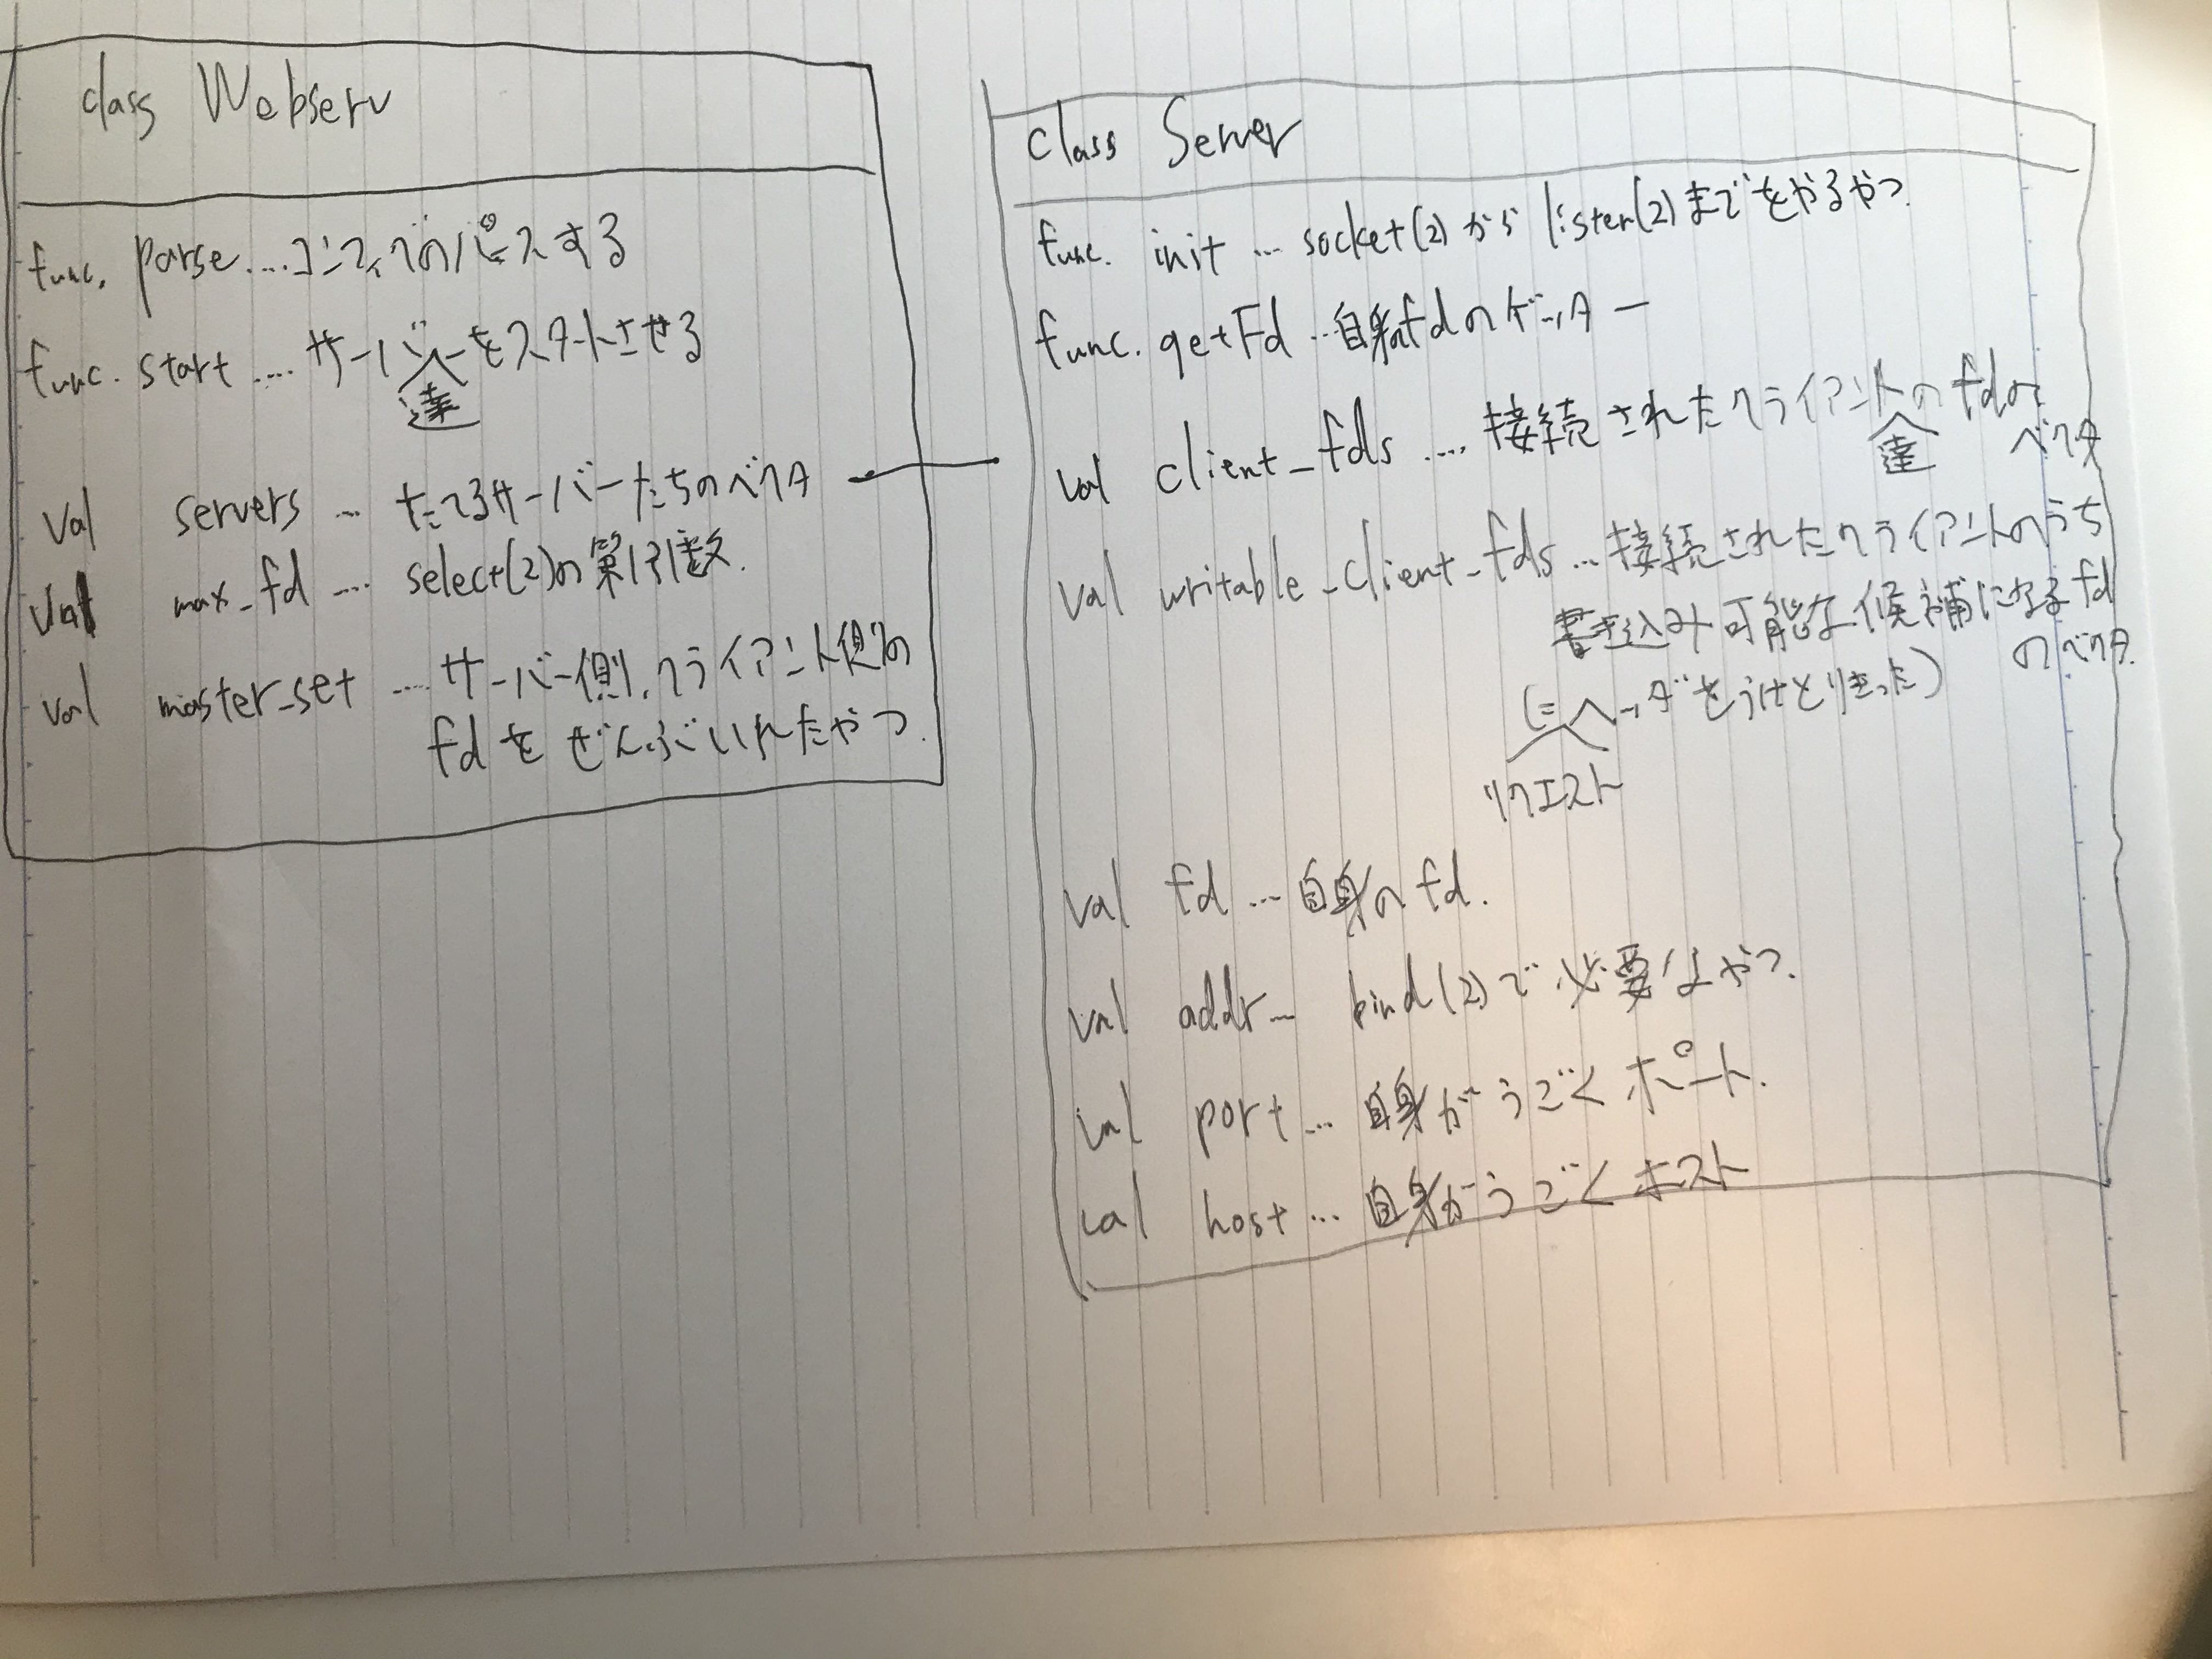 class Webserv
func. parse....コンフィグのパースする
func. start .... サーバー達をスタートさせる
val servers ... たてるサーバーたちのベクタ
val max_fd ... select(2)の第1引数.
val master_set .... サーバー側、クライアント側の
fdをぜんぶいれたやつ.
class Server
func. init ... socket(2)からlisten(2)までをやるやつ.
func. getFd ...自身のfdのゲッター
val client_fds .... 接続されたクライアント達のfdの
ベクタ
val writable_client_fds ... 接続されたクライアントのうち
書き込み可能な候補になるfd
のベクタ.
(=リクエストヘッダをうけとりきった)
val fd ... 自身のfd.
val addr... bind(2)で必要なやつ.
val port ... 自身がうごくポート.
val host ... 自身がうごくホスト